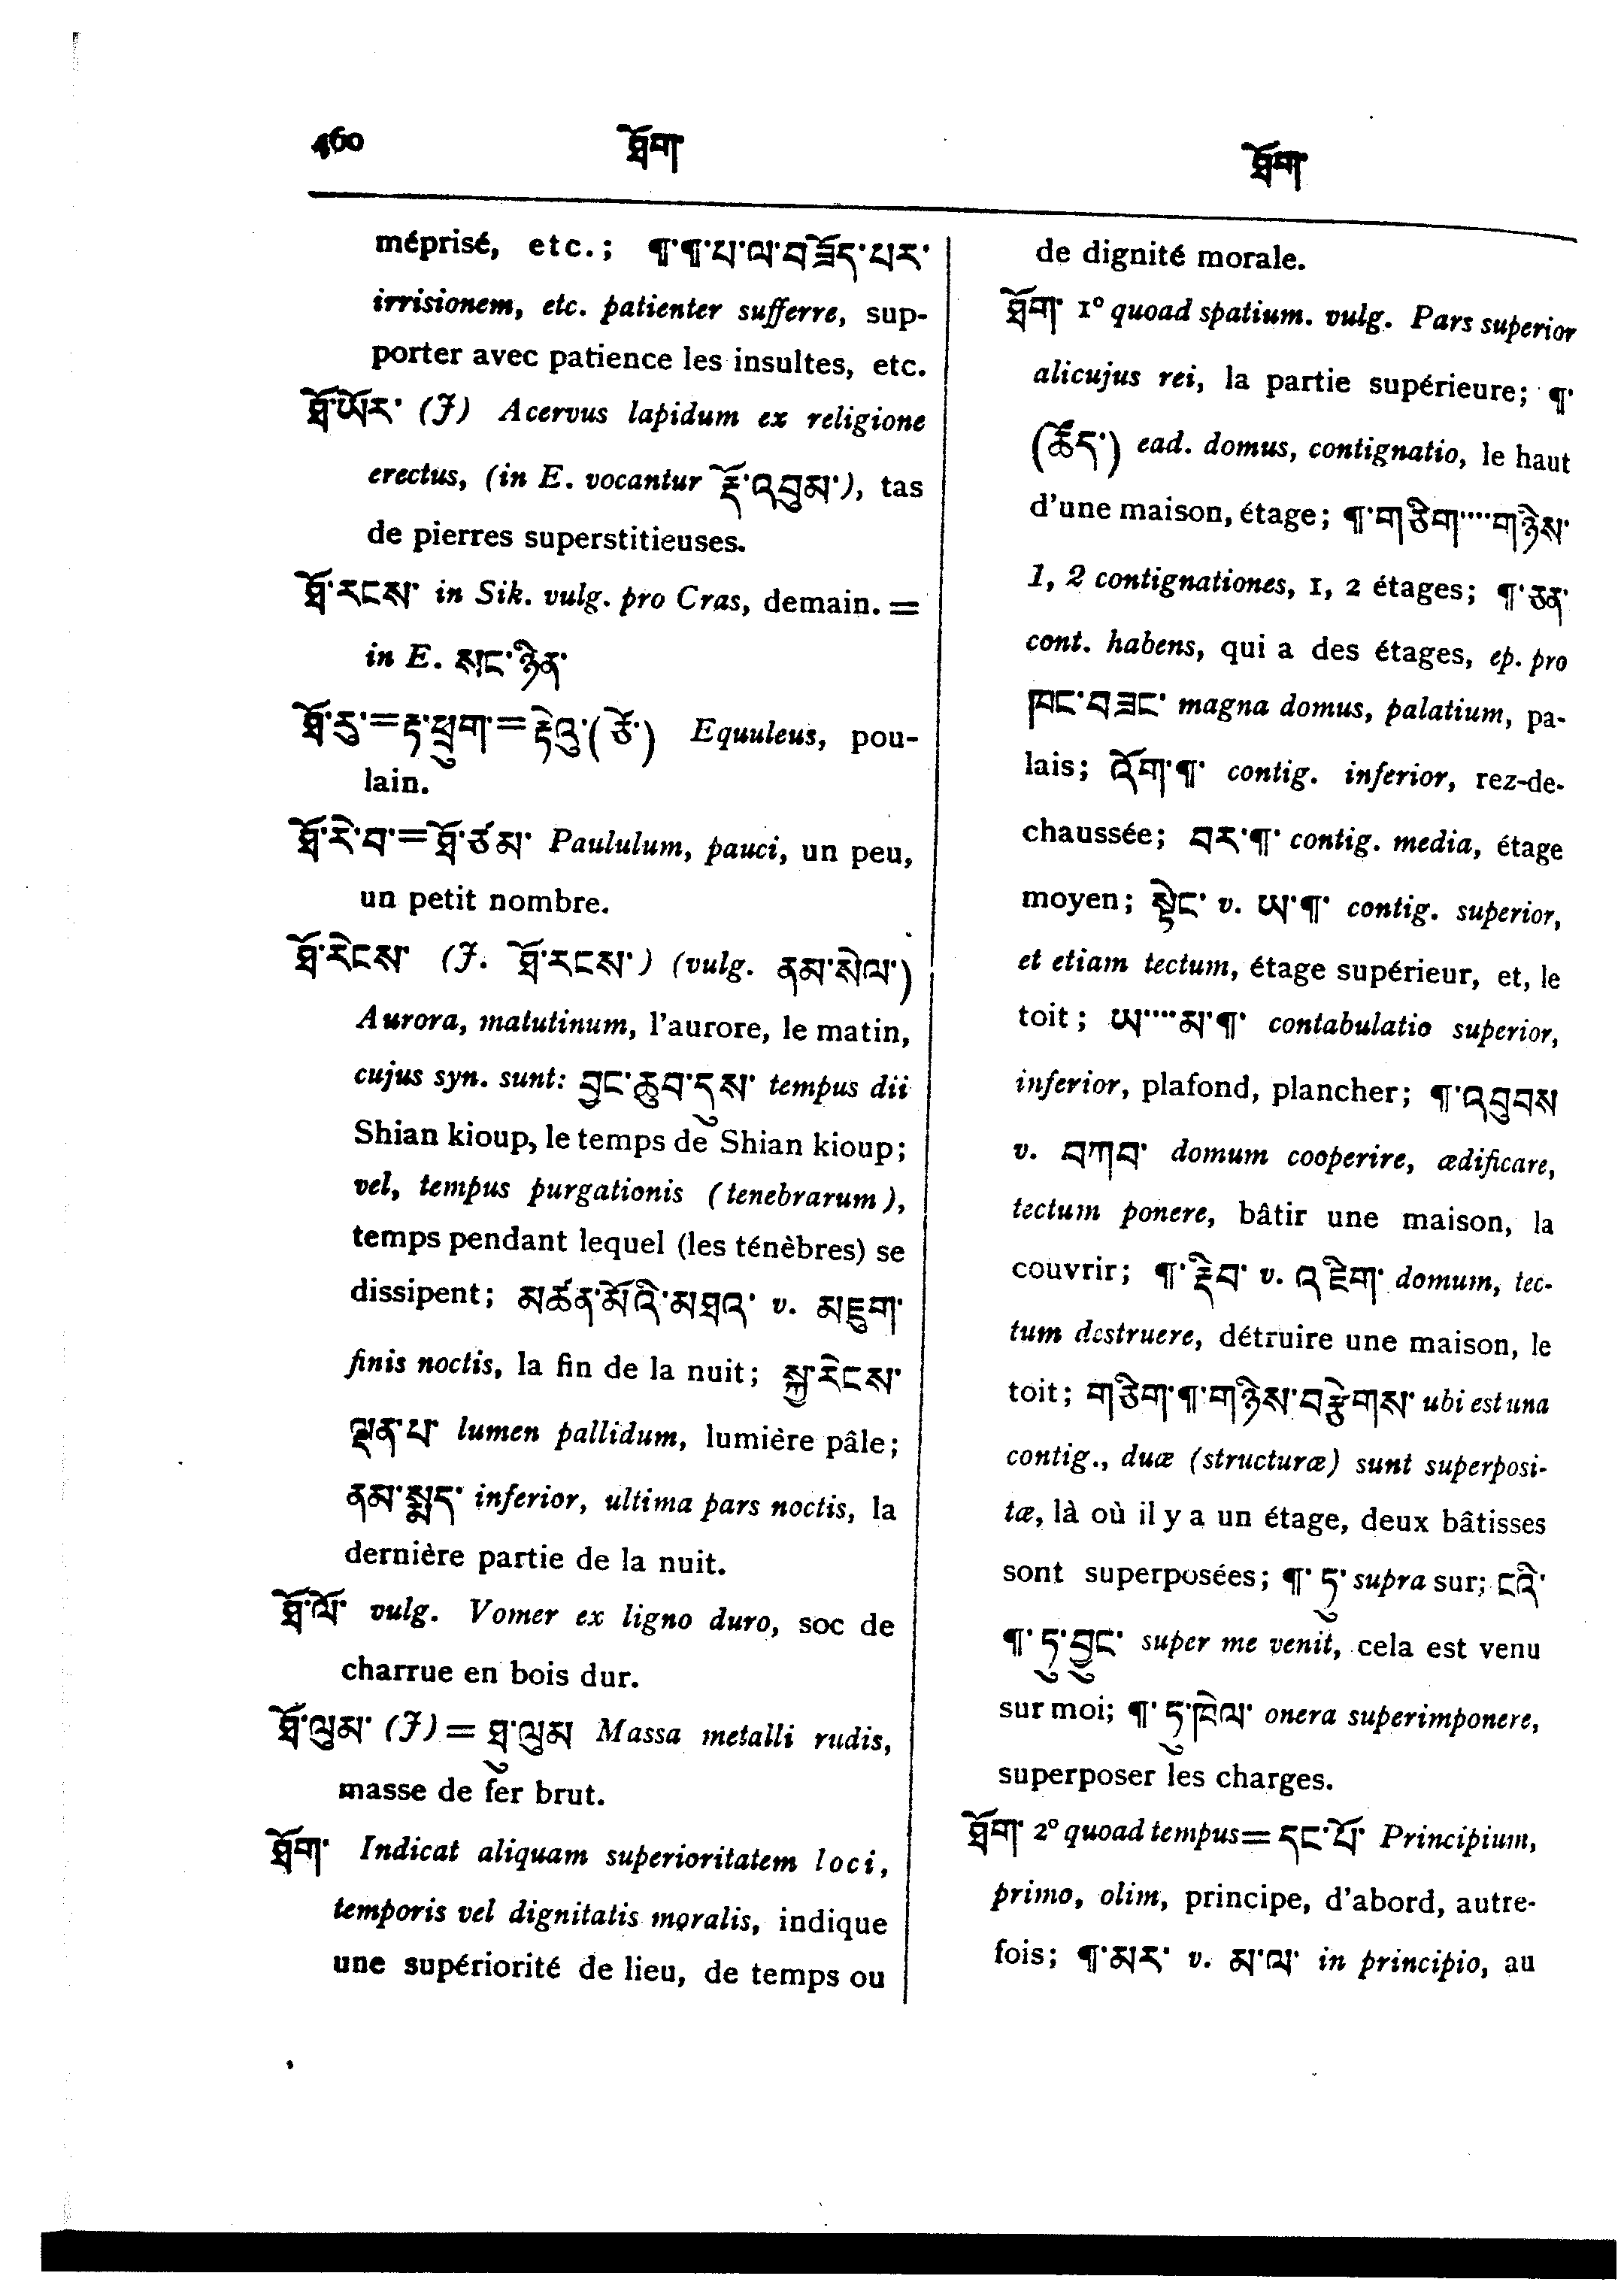 460 ཐོག ཐོག
méprisé, etc.; ¶་¶་པ་ལ་བཟོད་པར་
irrisionem, etc. patienter sufferre, sup-
porter avec patience les insultes, etc.
ཐོ་ཡོར་ (J) Acervus lapidum ex religione
erectus, (in E. vocantur རྡོ་འབུམ་), tas
de pierres superstitieuses.
ཐོ་རངས་ in Sik. vulg. pro Cras, demain. =
in E. སང་ཉིན་
ཐོ་རུ་=རྟ་ཕྲུག་=རྟེའུ་(ཙོ་) Equuleus, pou-
lain.
ཐོ་རེ་བ་=ཐོ་ཙམ་ Paululum, pauci, un peu,
un petit nombre.
ཐོ་རེངས་ (J. ཐོ་རངས་) (vulg. ནམ་སེལ་)
Aurora, matutinum, l'aurore, le matin,
cujus syn. sunt: བྱང་ཆུབ་དུས་ tempus dii
Shian kioup, le temps de Shian kioup;
vel, tempus purgationis (tenebrarum),
temps pendant lequel (les ténèbres) se
dissipent; མཚན་མོའི་མཐའ་ v. མཇུག་
finis noctis, la fin de la nuit; སྐྱ་རེངས་
ལྡན་པ་ lumen pallidum, lumière pâle;
ནམ་སྨད་ inferior, ultima pars noctis, la
dernière partie de la nuit.
ཐོ་ལོ་ vulg. Vomer ex ligno duro, soc de
charrue en bois dur.
ཐོ་ལུམ་ (J) = ཐུ་ལུམ Massa metalli rudis,
masse de fer brut.
ཐོག་ Indicat aliquam superioritatem loci,
temporis vel dignitatis moralis, indique
une supériorité de lieu, de temps ou
de dignité morale.
ཐོག་ 1º quoad spatium. vulg. Pars superior
alicujus rei, la partie supérieure; ¶་
(ཚོད་) ead. domus, contignatio, le haut
d'une maison, étage; ¶་གཅིག་་་་་གཉིས་
1, 2 contignationes, 1, 2 étages; ¶་ཅན་
cont. habens, qui a des étages, ep. pro
ཁང་བཟང་ magna domus, palatium, pa-
lais; འོག་¶་ contig. inferior, rez-de-
chaussée; བར་¶་ contig. media, étage
moyen; སྟེང་ v. ཡ་¶་ contig. superior,
et etiam tectum, étage supérieur, et, le
toit; ཡ་་་་་མ་¶་ contabulatio superior,
inferior, plafond, plancher; ¶་འབུབས
v. བཀབ་ domum cooperire, ædificare,
tectum ponere, bâtir une maison, la
couvrir; ¶་རྡིབ་ v. འཇིག་ domum, tec-
tum destruere, détruire une maison, le
toit; གཅིག་¶་གཉིས་བརྩེགས་ ubi est una
contig., duæ (structuræ) sunt superposi-
tæ, là où il y a un étage, deux bâtisses
sont superposées; ¶་ཏུ་ supra sur; ངའི་
¶་ཏུ་བྱུང་ super me venit, cela est venu
sur moi; ¶་ཏུ་ཁེལ་ onera superimponere,
superposer les charges.
ཐོག་ 2º quoad tempus= དང་པོ་ Principium,
primo, olim, principe, d'abord, autre-
fois; ¶་མར་ v. མ་ལ་ in principio, au